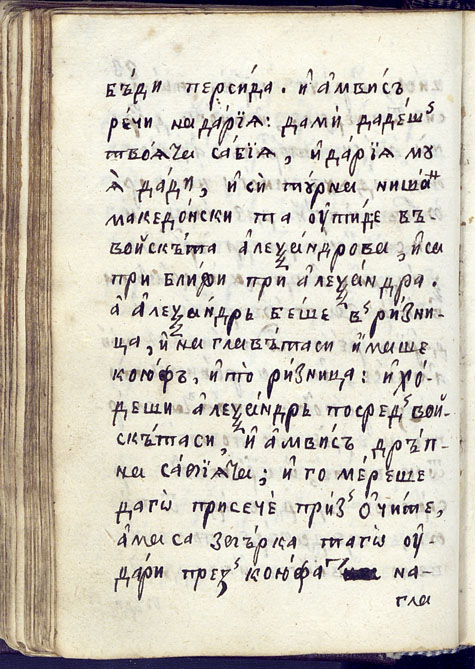 бъ́ди персида. и҆ а҆мвис̾
ре́чи на да́рїꙗ: дами дадешъ
твоѧта сабїѧ, и҆ да́рїѧ мꙋ
ѧ҆ да́ди, и҆ си тꙋ́рна ниша́н
македо́нски та ѹ҆ти́де въ
войскъта а҆леѯандрова, и҆ са
при ближи при а҆леѯандра.
а҆ а҆леѯандръ бе́ше въ ри́зни-
ца, и҆ на главътаси и҆маше
кою́фъ, и҆ то̀ ри́зница: и҆ хо́-
деши а҆леѯандръ посред вой-
скътаси, и҆ а҆мвис̾ дръ́п-
на сабїѧта; и҆ го ме́реше
даго̀ присечѐ през о҆чи́те,
а҆ ма са згърка таго̀ ѹ҆-
дари през кою́фа на-
гла